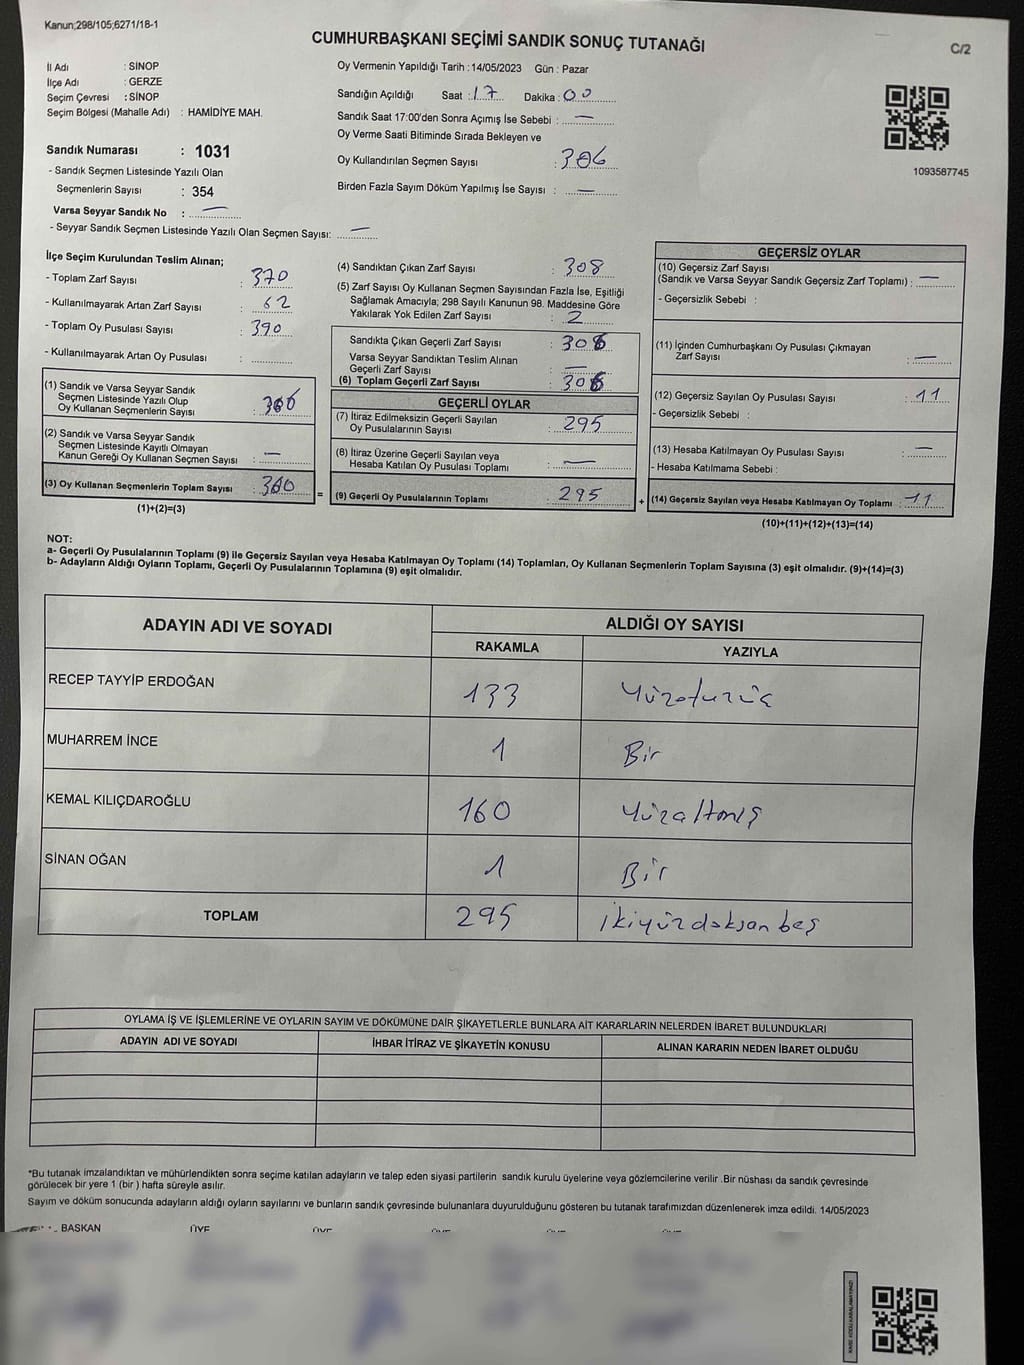 Kanun;298/105;6271/18-1
CUMHURBAŞKANI SEÇİMİ SANDIK SONUÇ TUTANAĞI
C/2
İl Adı : SİNOP
İlçe Adı : GERZE
Seçim Çevresi : SİNOP
Seçim Bölgesi (Mahalle Adı) : HAMİDİYE MAH.
Sandık Numarası : 1031
- Sandık Seçmen Listesinde Yazılı Olan
Seçmenlerin Sayısı : 354
Varsa Seyyar Sandık No : —
- Seyyar Sandık Seçmen Listesinde Yazılı Olan Seçmen Sayısı: —
Oy Vermenin Yapıldığı Tarih : 14/05/2023 Gün : Pazar
Sandığın Açıldığı Saat : 17 Dakika : 00
Sandık Saat 17:00'den Sonra Açımış İse Sebebi : —
Oy Verme Saati Bitiminde Sırada Bekleyen ve
Oy Kullandırılan Seçmen Sayısı : 306
Birden Fazla Sayım Döküm Yapılmış İse Sayısı : —
1093587745
İlçe Seçim Kurulundan Teslim Alınan;
- Toplam Zarf Sayısı : 370
- Kullanılmayarak Artan Zarf Sayısı : 62
- Toplam Oy Pusulası Sayısı : 390
- Kullanılmayarak Artan Oy Pusulası :
(1) Sandık ve Varsa Seyyar Sandık
Seçmen Listesinde Yazılı Olup
Oy Kullanan Seçmenlerin Sayısı : 306
(2) Sandık ve Varsa Seyyar Sandık
Seçmen Listesinde Kayıtlı Olmayan
Kanun Gereği Oy Kullanan Seçmen Sayısı : —
(3) Oy Kullanan Seçmenlerin Toplam Sayısı :
(1)+(2)=(3)
(4) Sandıktan Çıkan Zarf Sayısı : 308
(5) Zarf Sayısı Oy Kullanan Seçmen Sayısından Fazla İse, Eşitliği
Sağlamak Amacıyla; 298 Sayılı Kanunun 98. Maddesine Göre
Yakılarak Yok Edilen Zarf Sayısı : 2
Sandıkta Çıkan Geçerli Zarf Sayısı : 306
Varsa Seyyar Sandıktan Teslim Alınan
Geçerli Zarf Sayısı : —
(6) Toplam Geçerli Zarf Sayısı : 306
GEÇERLİ OYLAR
(7) İtiraz Edilmeksizin Geçerli Sayılan
Oy Pusulalarının Sayısı : 295
(8) İtiraz Üzerine Geçerli Sayılan veya
Hesaba Katılan Oy Pusulası Toplamı : —
= (9) Geçerli Oy Pusulalarının Toplamı : 295
GEÇERSİZ OYLAR
(10) Geçersiz Zarf Sayısı
(Sandık ve Varsa Seyyar Sandık Geçersiz Zarf Toplamı) : —
- Geçersizlik Sebebi :
(11) İçinden Cumhurbaşkanı Oy Pusulası Çıkmayan
Zarf Sayısı : —
(12) Geçersiz Sayılan Oy Pusulası Sayısı : 11
- Geçersizlik Sebebi :
(13) Hesaba Katılmayan Oy Pusulası Sayısı : —
- Hesaba Katılmama Sebebi :
+ (14) Geçersiz Sayılan veya Hesaba Katılmayan Oy Toplamı : 11
(10)+(11)+(12)+(13)=(14)
NOT:
a- Geçerli Oy Pusulalarının Toplamı (9) ile Geçersiz Sayılan veya Hesaba Katılmayan Oy Toplamı (14) Toplamları, Oy Kullanan Seçmenlerin Toplam Sayısına (3) eşit olmalıdır. (9)+(14)=(3)
b- Adayların Aldığı Oyların Toplamı, Geçerli Oy Pusulalarının Toplamına (9) eşit olmalıdır.
ADAYIN ADI VE SOYADI
ALDIĞI OY SAYISI
RAKAMLA YAZIYLA
RECEP TAYYİP ERDOĞAN 133 Yüzotuzüç
MUHARREM İNCE 1 Bir
KEMAL KILIÇDAROĞLU 160 Yüzaltmış
SİNAN OĞAN 1 Bir
TOPLAM 295 ikiyüzdoksanbeş
OYLAMA İŞ VE İŞLEMLERİNE VE OYLARIN SAYIM VE DÖKÜMÜNE DAİR ŞİKAYETLERLE BUNLARA AİT KARARLARIN NELERDEN İBARET BULUNDUKLARI
ADAYIN ADI VE SOYADI İHBAR İTİRAZ VE ŞİKAYETİN KONUSU ALINAN KARARIN NEDEN İBARET OLDUĞU
*Bu tutanak imzalandıktan ve mühürlendikten sonra seçime katılan adayların ve talep eden siyasi partilerin sandık kurulu üyelerine veya gözlemcilerine verilir .Bir nüshası da sandık çevresinde
görülecek bir yere 1 (bir ) hafta süreyle asılır.
Sayım ve döküm sonucunda adayların aldığı oyların sayılarını ve bunların sandık çevresinde bulunanlara duyurulduğunu gösteren bu tutanak tarafımızdan düzenlenerek imza edildi. 14/05/2023
BAŞKAN ÜYE